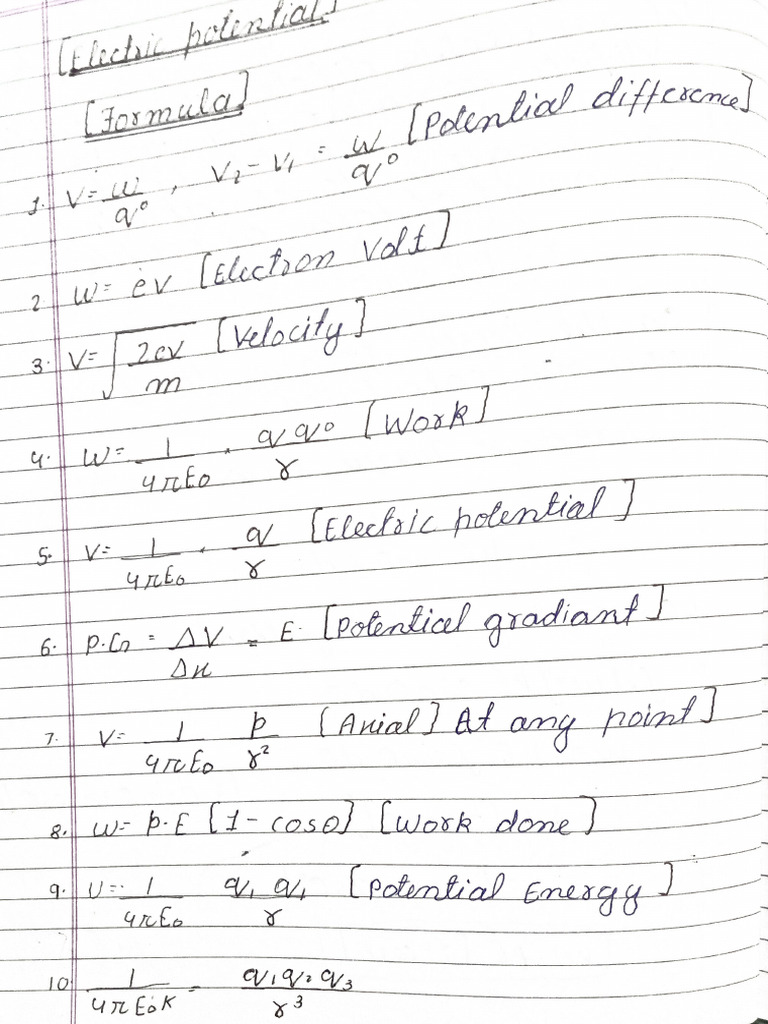 [Electric potential]
[Formula]
1. V = w/q⁰ , V₂ - V₁ = w/q⁰ [Potential difference]
2. W = ev [Electron Volt]
3. V = √(2ev/m) [Velocity]
4. W = 1/4πE₀ . q q⁰/r [Work]
5. V = 1/4πE₀ . q/r [Electric potential]
6. P.G = ΔV/Δx = E [Potential gradiant]
7. V = 1/4πE₀ p/r² [Axial] At any point]
8. W = p.E [1 - cosθ] [Work done]
9. U = 1/4πE₀ q₁ q₁/r [Potential Energy]
10 1/4πE₀K = q₁q₂q₃/r³